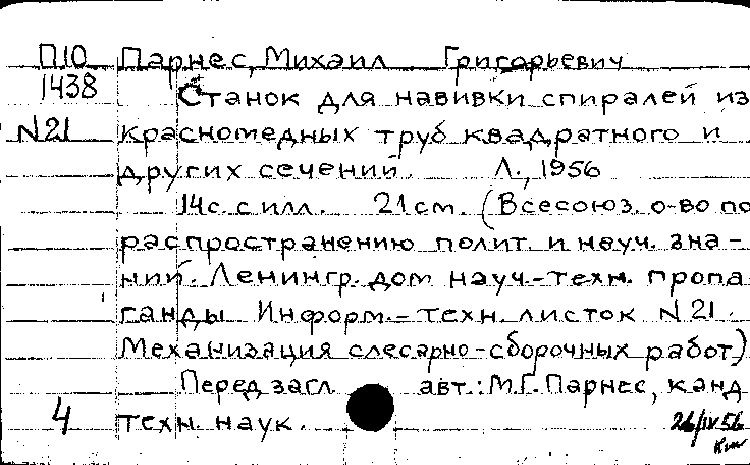 П10 Парнес, Михаил Григорьевич
1438 Станок для навивки спиралей из
N21 красномедных труб квадратного и
других сечений. Л., 1956
14с. с илл. 21см. (Всесоюз. о-во по
распространению полит. и науч. зна-
ний. Ленингр. дом науч.-техн. пропа-
ганды. Информ.-техн. листок N21.
Механизация слесарно-сборочных работ)
Перед загл. авт.: М.Г. Парнес, канд.
4 техн. наук. 26/IV 56